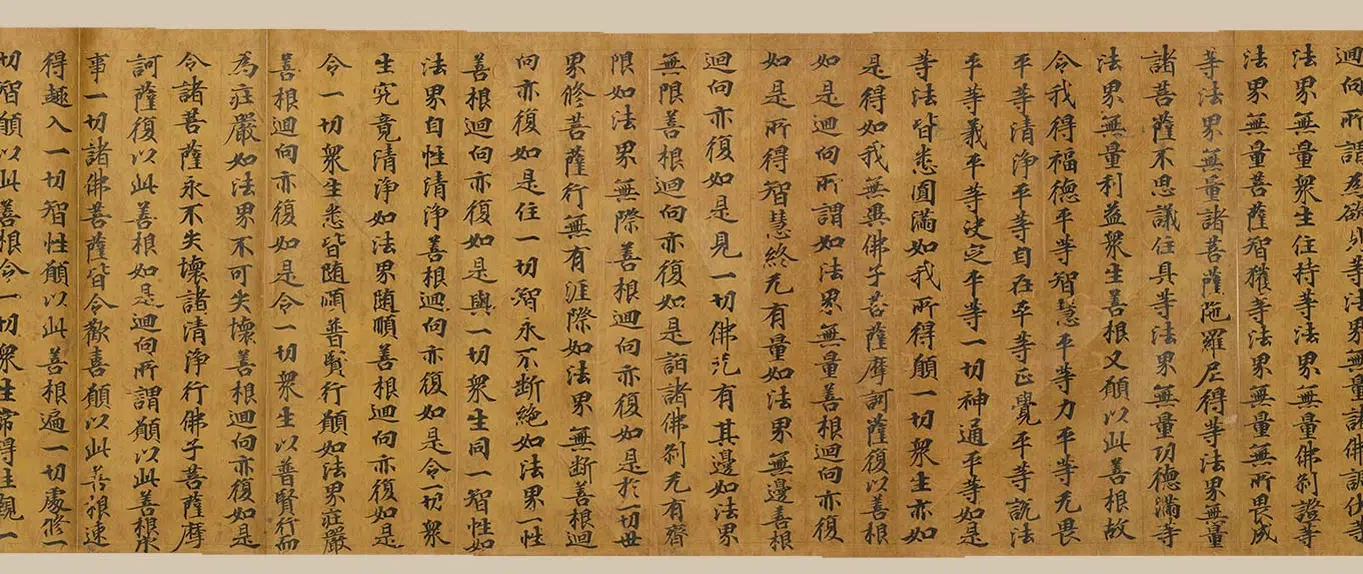 迴向所謂為欲見等法界無量諸佛調伏等
法界無量衆生住持等法界無量佛剎證等
法界無量菩薩智獲等法界無量無所畏成
等法界無量諸菩薩陁羅尼得等法界無量
諸菩薩不思議住具等法界無量功德滿等
法界無量利益衆生善根又願以此善根故
令我得福德平等智慧平等力平等无畏
平等清淨平等自在平等正覺平等說法
平等義平等決定平等一切神通平等如是
等法皆悉圓滿如我所得願一切衆生亦如
是得如我無異佛子菩薩摩訶薩復以善根
如是迴向所謂如法界無量善根迴向亦復
如是所得智慧終无有量如法界無邊善根
迴向亦復如是見一切佛无有其邊如法界
無限善根迴向亦復如是詣諸佛剎无有齊
限如法界無際善根迴向亦復如是於一切世
界修菩薩行無有涯際如法界無斷善根迴
向亦復如是住一切智永不斷絕如法界一性
善根迴向亦復如是與一切衆生同一智性如
法界自性清淨善根迴向亦復如是令一切衆
生究竟清淨如法界隨順善根迴向亦復如是
令一切衆生悉皆隨順普賢行願如法界莊嚴
善根迴向亦復如是令一切衆生以普賢行而
為莊嚴如法界不可失壞善根迴向亦復如是
令諸菩薩永不失壞諸清淨行佛子菩薩摩
訶薩復以此善根如是迴向所謂願以此善根承
事一切諸佛菩薩皆令歡喜願以此善根速
得趣入一切智性願以此善根遍一切處修一
切智願以此善根令一切衆生常得往覲一